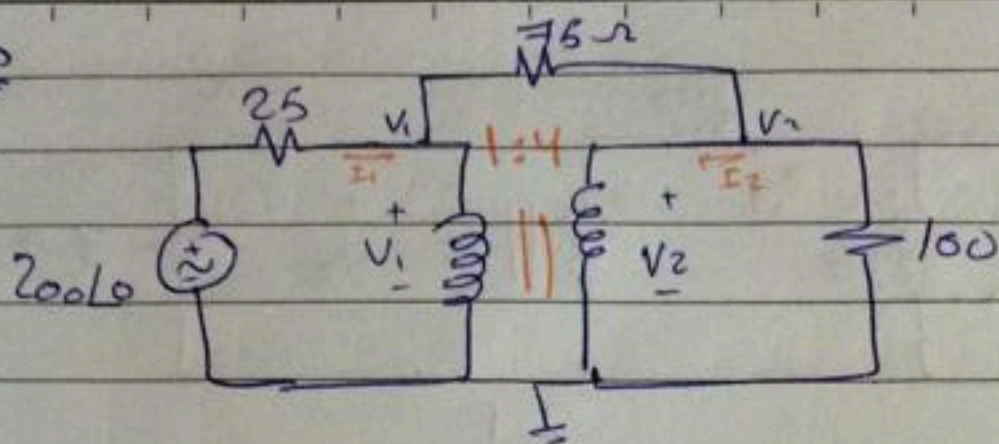 75Ω
25
V₁
1:4
V₂
I₁
I₂
+
V₁
-
+
V2
-
+
~
200∠0
100